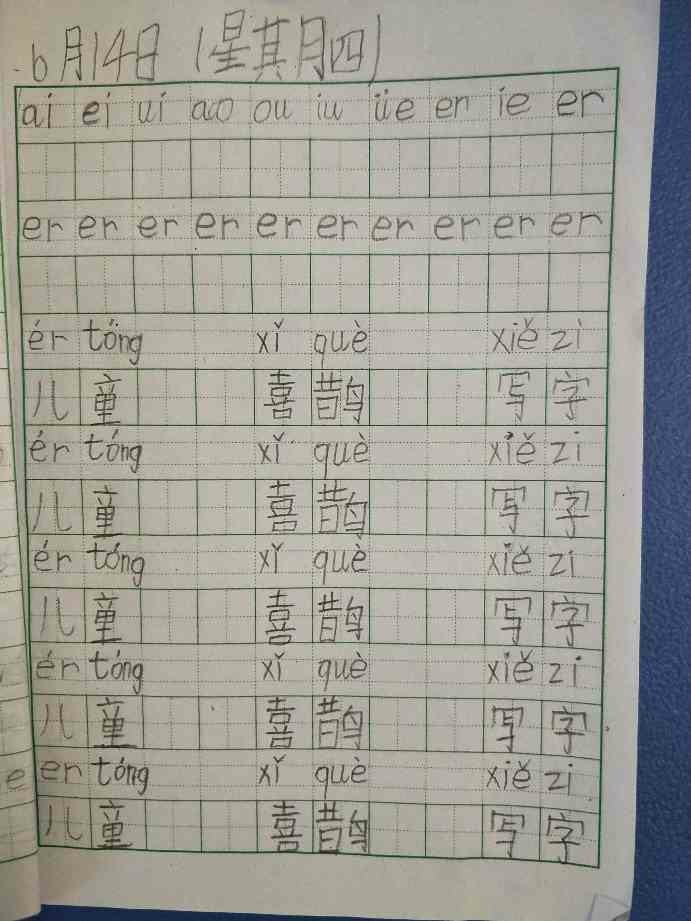 6月14日 (星其月四)
ai ei ui ao ou iu üe er ie er
er er er er er er er er er er
ér tóng xǐ què xiě zì
儿童 喜鹊 写字
ér tóng xǐ què xiě zì
儿童 喜鹊 写字
ér tóng xǐ què xiě zi
儿童 喜鹊 写字
ér tóng xǐ què xiě zi
儿童 喜鹊 写字
er tóng xǐ què xiě zi
儿童 喜鹊 写字